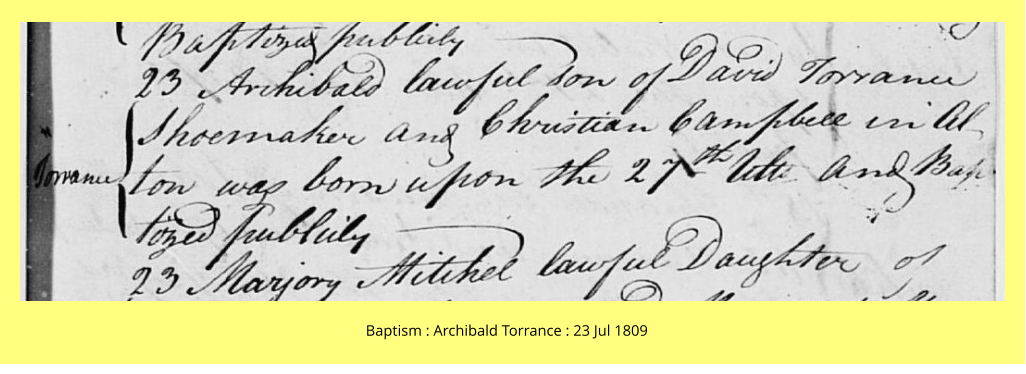 Baptized publicly
23 Archibald lawful Son of David Torrance
Shoemaker and Christian Campbell in Al-
Torrance
ton was born upon the 27th Ulto and Bap
tized publicly
23 Marjory Mitchel lawful Daughter of
Baptism : Archibald Torrance : 23 Jul 1809